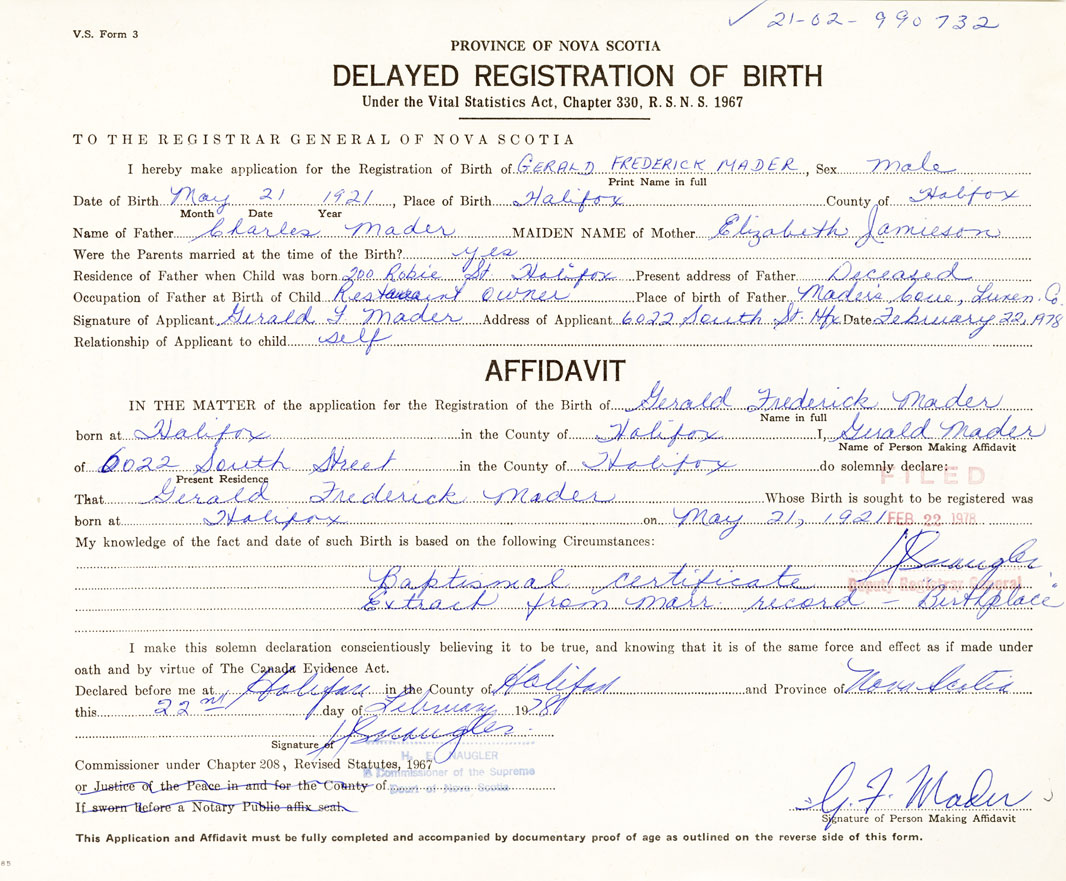 V.S. Form 3
✓ 21-02-990732
PROVINCE OF NOVA SCOTIA
DELAYED REGISTRATION OF BIRTH
Under the Vital Statistics Act, Chapter 330, R.S.N.S. 1967
TO THE REGISTRAR GENERAL OF NOVA SCOTIA
I hereby make application for the Registration of Birth of GERALD FREDERICK MADER, Sex Male
Print Name in full
Date of Birth May 21 1921, Place of Birth Halifax County of Halifax
Month Date Year
Name of Father Charles Mader MAIDEN NAME of Mother Elizabeth Jamieson
Were the Parents married at the time of the Birth? yes
Residence of Father when Child was born 200 Robie St. Halifax Present address of Father Deceased
Occupation of Father at Birth of Child Restaurant owner Place of birth of Father Mader's Cove, Lunen. Co.
Signature of Applicant Gerald F Mader Address of Applicant 6022 South St. Hfx Date February 22, 1978
Relationship of Applicant to child self
AFFIDAVIT
IN THE MATTER of the application for the Registration of the Birth of Gerald Frederick Mader
Name in full
born at Halifax in the County of Halifax I, Gerald Mader
Name of Person Making Affidavit
of 6022 South Street in the County of Halifax do solemnly declare:
Present Residence
FILED
That Gerald Frederick Mader Whose Birth is sought to be registered was
born at Halifax on May 21, 1921 FEB 22 1978
My knowledge of the fact and date of such Birth is based on the following Circumstances:
H E Naugler
Baptismal certificate Deputy Registrar General
Extract from marr. record - Birthplace
I make this solemn declaration conscientiously believing it to be true, and knowing that it is of the same force and effect as if made under
oath and by virtue of The Canada Evidence Act.
Declared before me at Halifax in the County of Halifax and Province of Nova Scotia
this 22nd day of February 1978
H E Naugler
Signature of
H. E. NAUGLER
Commissioner under Chapter 208, Revised Statutes, 1967
A Commissioner of the Supreme
or Justice of the Peace in and for the County of
Court of Nova Scotia
If sworn before a Notary Public affix seal.
G. F. Mader
Signature of Person Making Affidavit
This Application and Affidavit must be fully completed and accompanied by documentary proof of age as outlined on the reverse side of this form.
85